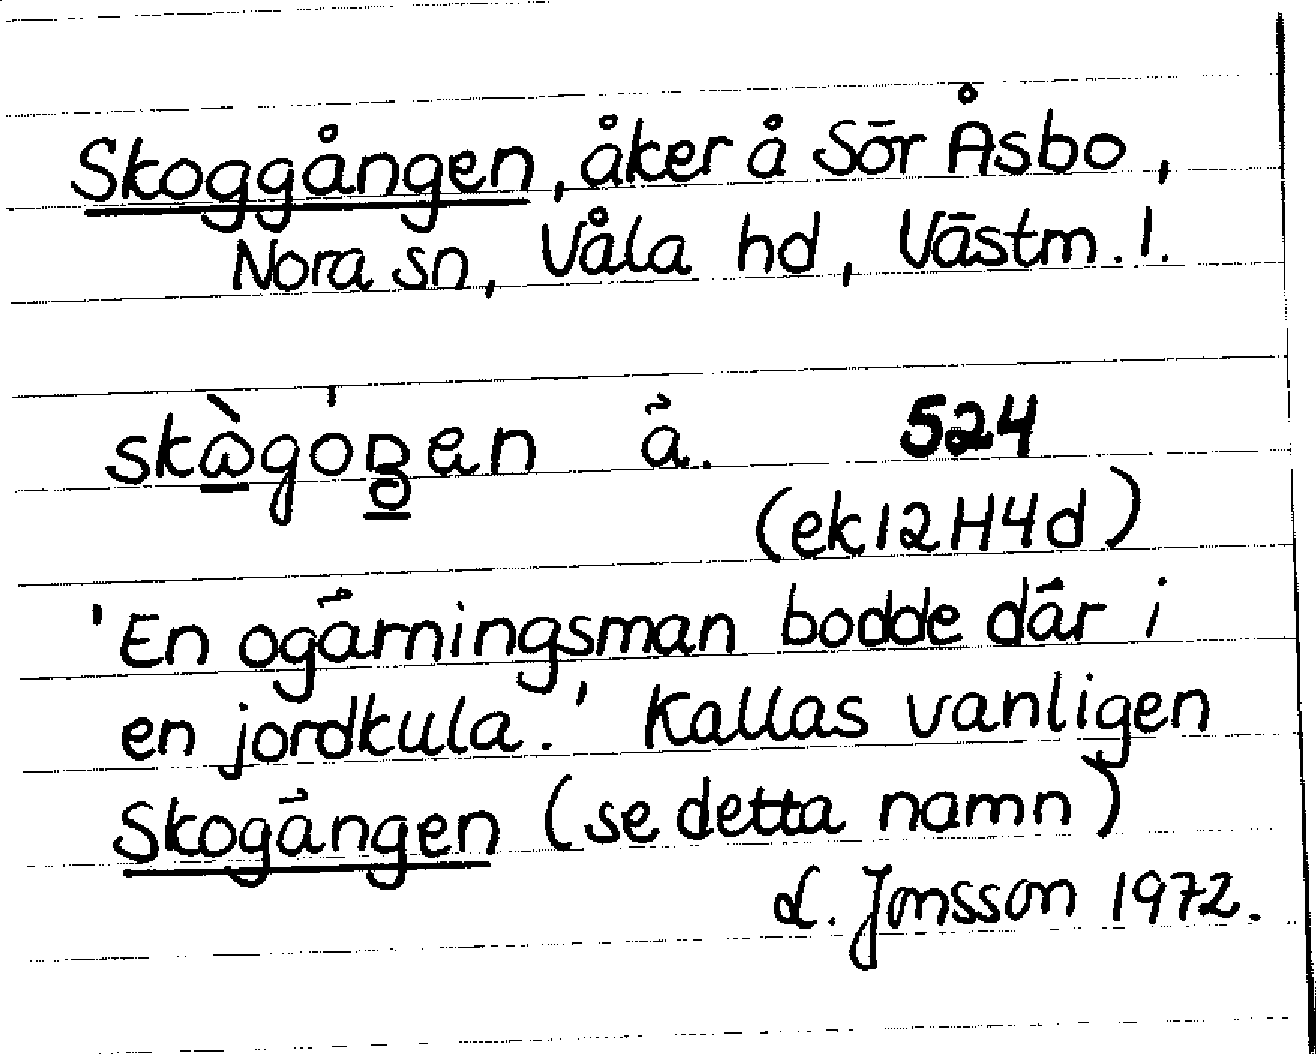 Skoggången, åker å Sör Åsbo,
Nora sn, Våla hd, Västm. l.
ä. 524
(ek12H4d)
'En ogärningsman bodde där i
en jordkula.' Kallas vanligen
Skogängen (se detta namn)
L. Jonsson 1972.